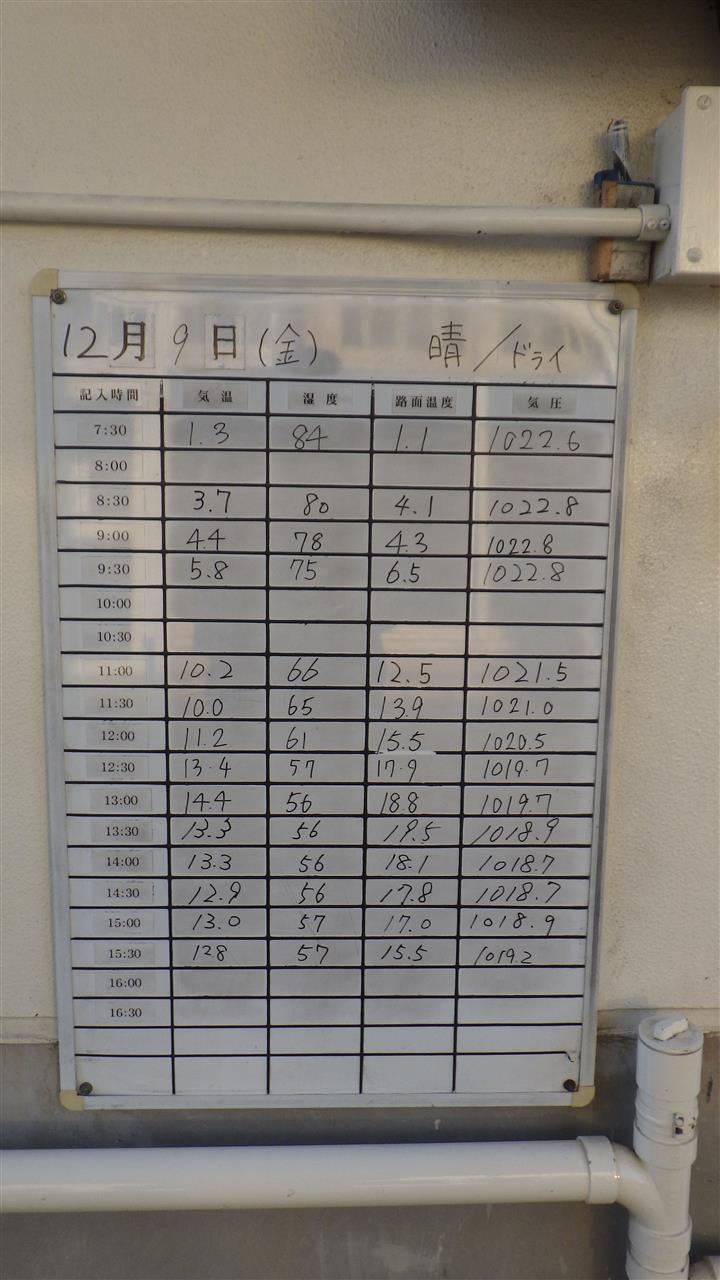 12月9日(金) 晴/ドライ
記入時間 気温 湿度 路面温度 気圧
7:30 1.3 84 1.1 1022.6
8:00
8:30 3.7 80 4.1 1022.8
9:00 4.4 78 4.3 1022.8
9:30 5.8 75 6.5 1022.8
10:00
10:30
11:00 10.2 66 12.5 1021.5
11:30 10.0 65 13.9 1021.0
12:00 11.2 61 15.5 1020.5
12:30 13.4 57 17.9 1019.7
13:00 14.4 56 18.8 1019.7
13:30 13.3 56 19.5 1018.9
14:00 13.3 56 18.1 1018.7
14:30 12.9 56 17.8 1018.7
15:00 13.0 57 17.0 1018.9
15:30 12.8 57 15.5 1019.2
16:00
16:30